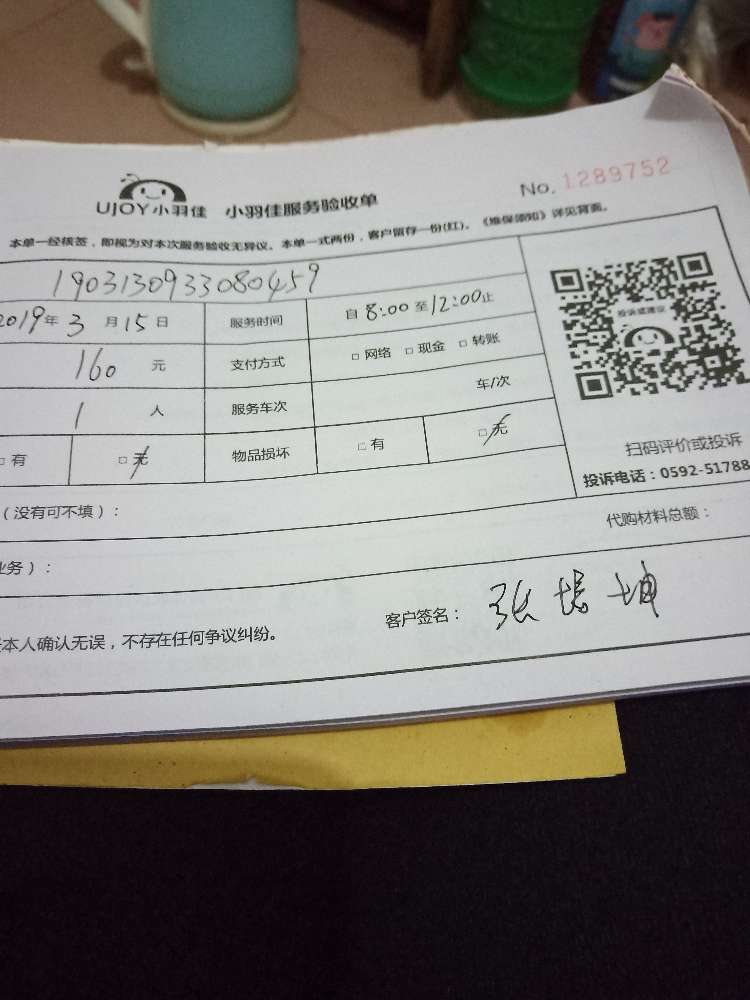 UJOY小羽佳 小羽佳服务验收单 No. 1289752
本单一经核签，即视为对本次服务验收无异议。本单一式两份，客户留存一份(红)。《维保须知》详见背面。
1903130933080459
2019年 3 月 15 日 服务时间 自 8:00 至 12:00止
160 元 支付方式 □ 网络 □ 现金 □ 转账
1 人 服务车次 车/次
□ 有 □ 无 物品损坏 □ 有 □ 无
投诉或建议
扫码评价或投诉
投诉电话：0592-51788
（没有可不填）： 代购材料总额：
业务）：
本人确认无误，不存在任何争议纠纷。 客户签名： 张培坤